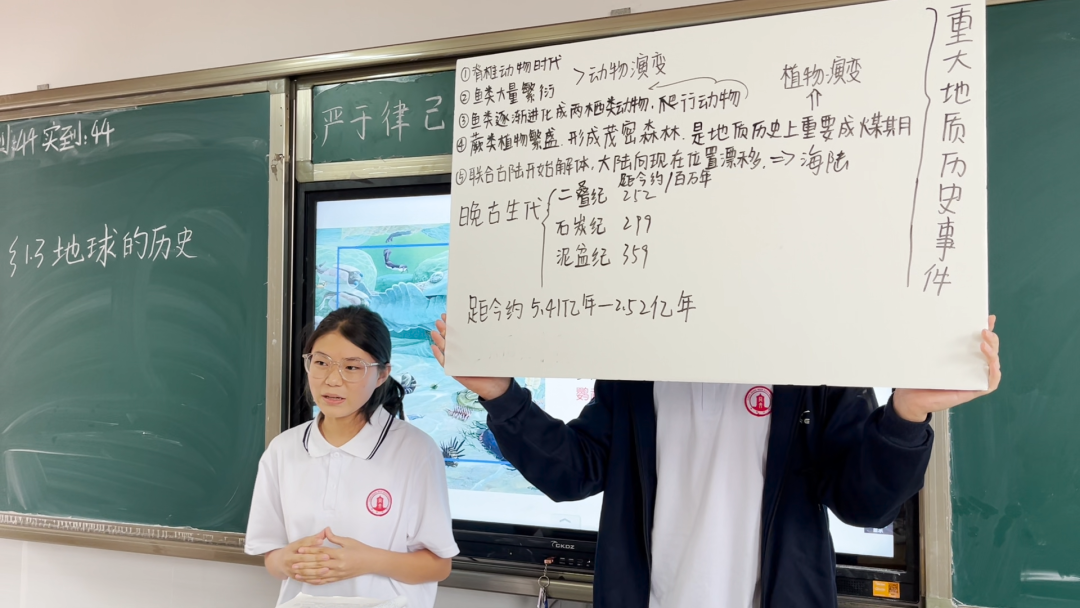 实到:44
§1.3 地球的历史
严于律己
①脊椎动物时代 >动物演变
②鱼类大量繁衍
③鱼类逐渐进化成两栖类动物、爬行动物
植物演变
④蕨类植物繁盛,形成茂密森林,是地质历史上重要成煤期
⑤联合古陆开始解体,大陆向现在位置漂移. => 海陆
距今约/百万年
晚古生代
二叠纪 252
石炭纪 299
泥盆纪 359
距今约 5.41亿年—2.52亿年
重大地质历史事件